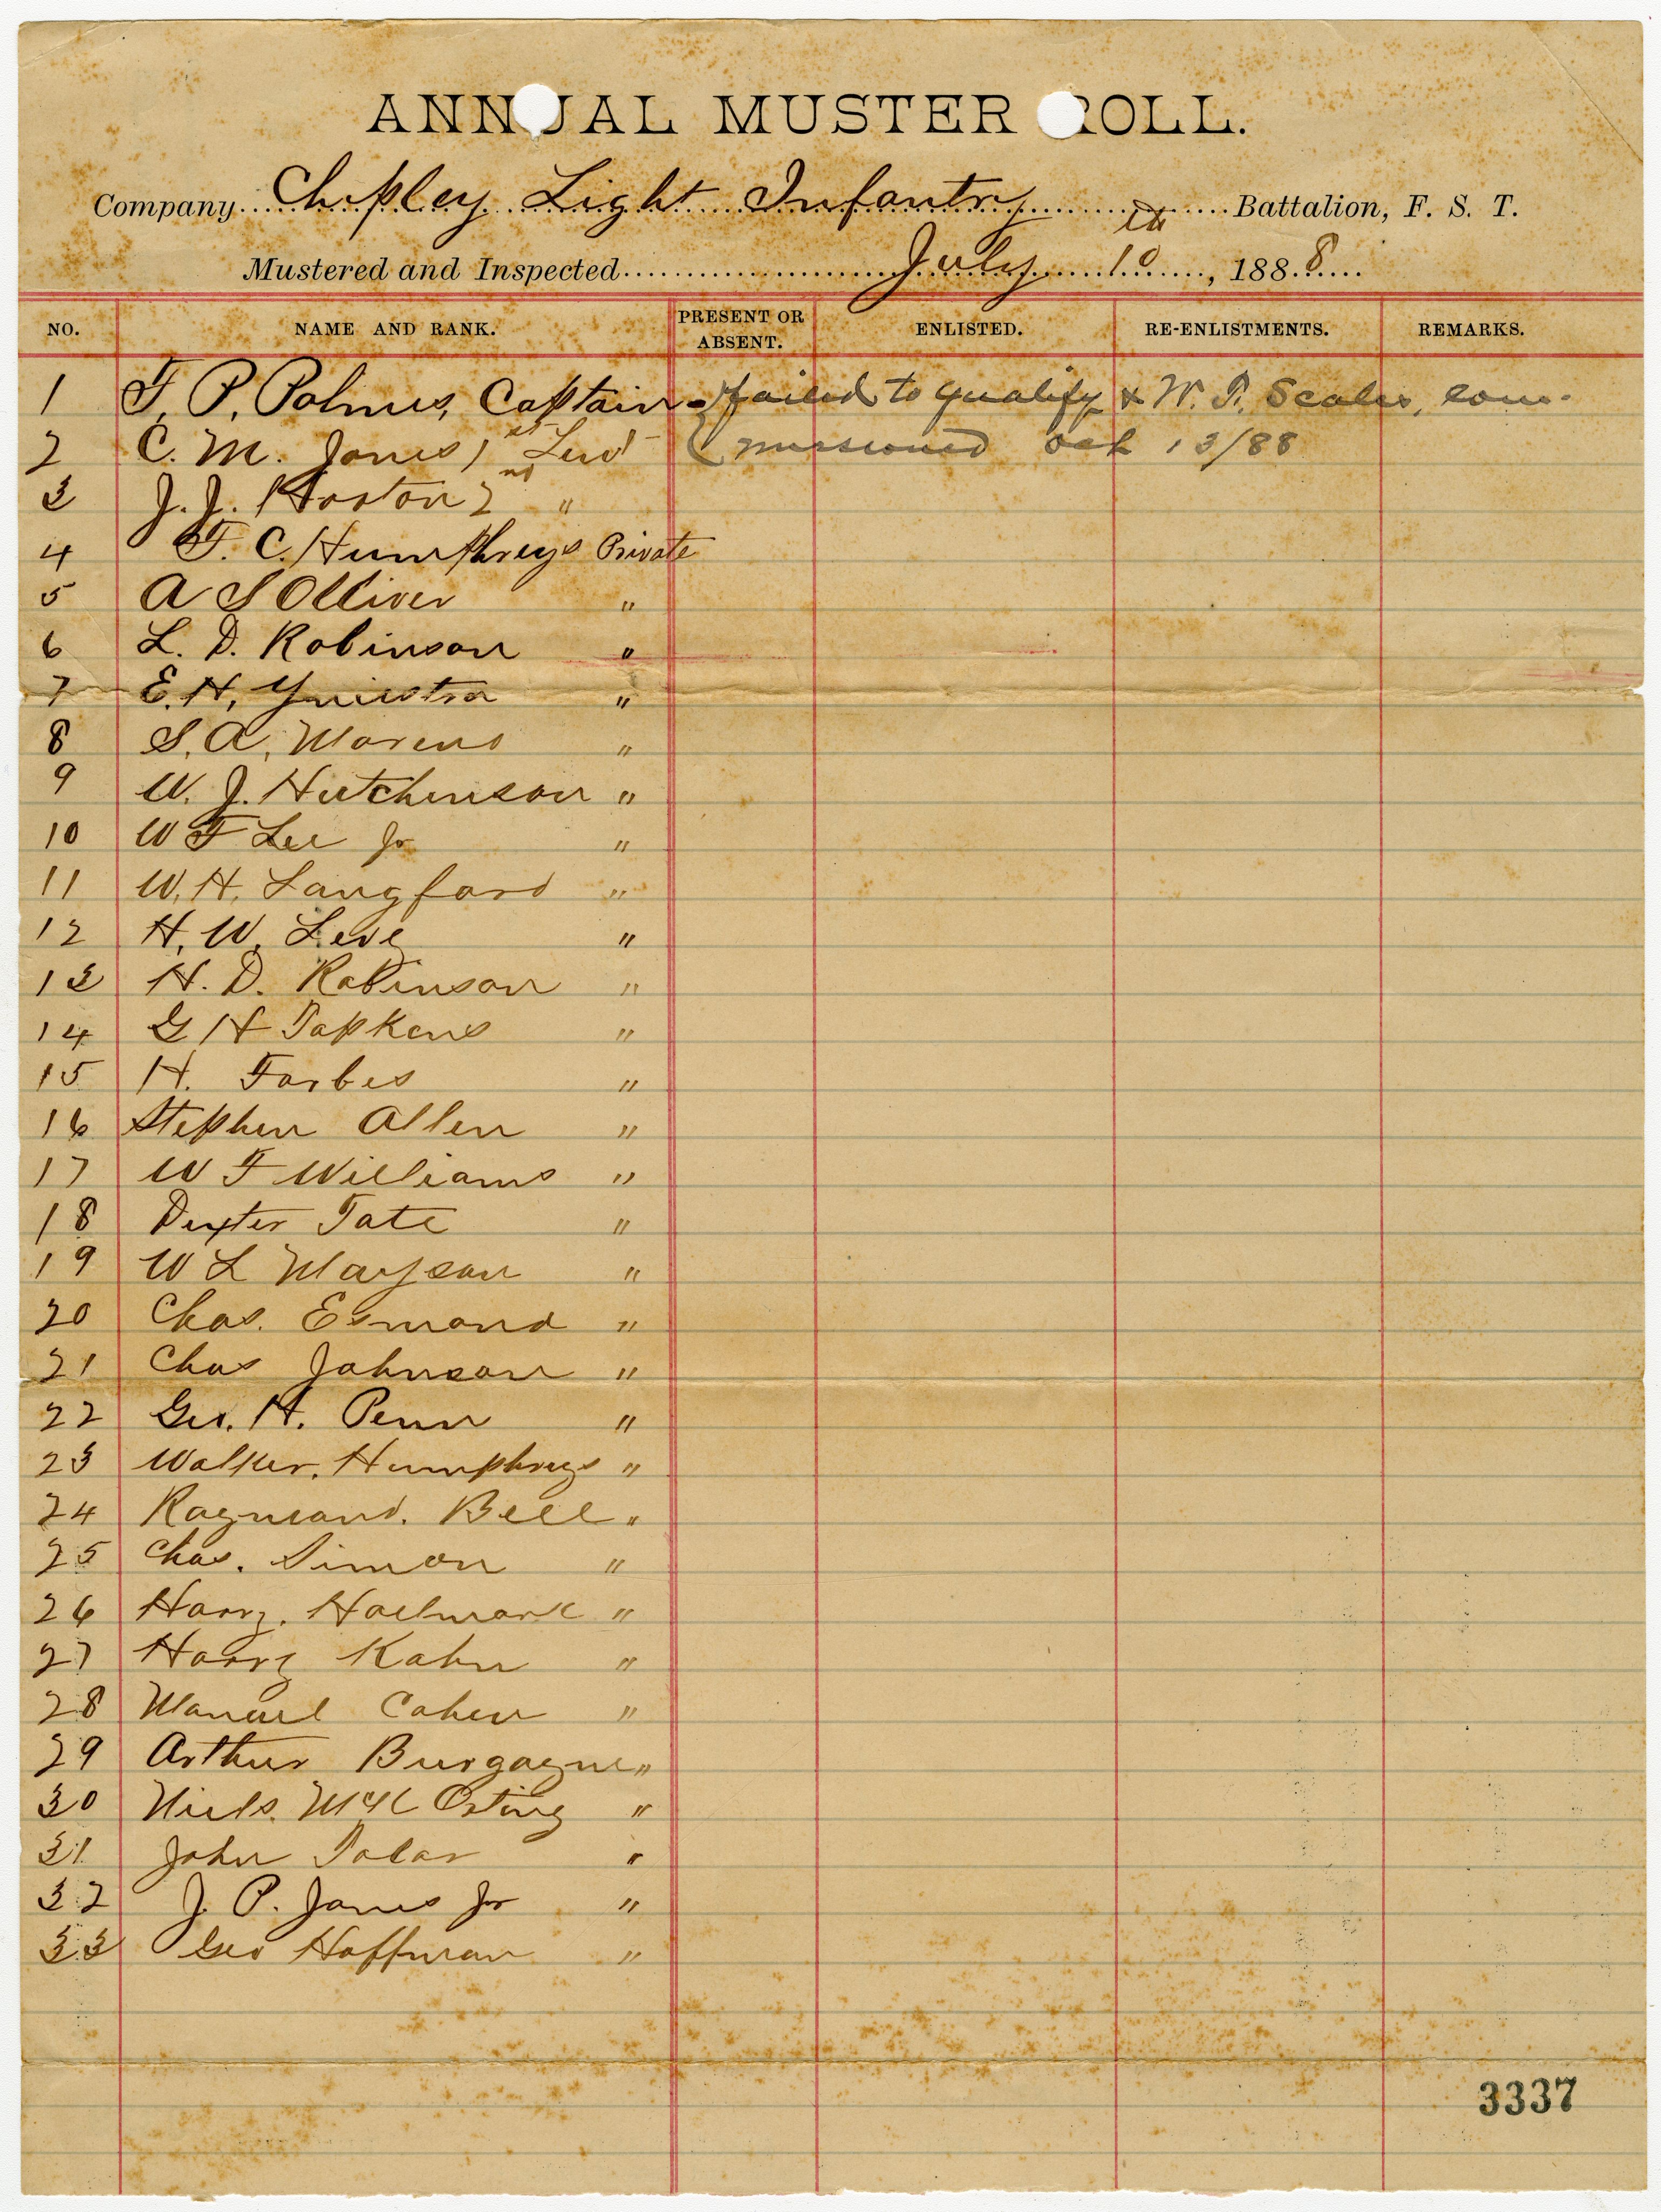 ANNUAL MUSTER ROLL.
Company Chipley Light Infantry Battalion, F. S. T.
Mustered and Inspected July 10th, 1888
NO. NAME AND RANK. PRESENT OR ABSENT. ENLISTED. RE-ENLISTMENTS. REMARKS.
1 F. P. Palmes, Captain - failed to qualify & W. F. Scales, com-
2 C. M. Jones 1st Lieut missioned Oct 13/88
3 J. J. Hooton 2nd "
4 F. C. Humphreys Private
5 A S Olliver "
6 L. D. Robinson "
7 E. H. Yniestra "
8 S. A. Moreno "
9 W. J. Hutchinson "
10 W F Lee Jr "
11 W. H. Langford "
12 H. W. Leve "
13 H. D. Robinson "
14 G H Tapkens "
15 H. Forbes "
16 Stephen Allen "
17 W F Williams "
18 Dexter Tate "
19 W L Mayson "
20 Chas. Esmond "
21 Chas Johnson "
22 Geo. H. Penn "
23 Walker. Humphreys "
24 Raymond. Bell "
25 Chas. Simon "
26 Harry. Hallmark "
27 Harry Kahn "
28 Manuel Cohen "
29 Arthur Burgoyne "
30 Niels. "
31 John Tolar "
32 J. P. Jones Jr "
33 Geo Hoffman "
3337